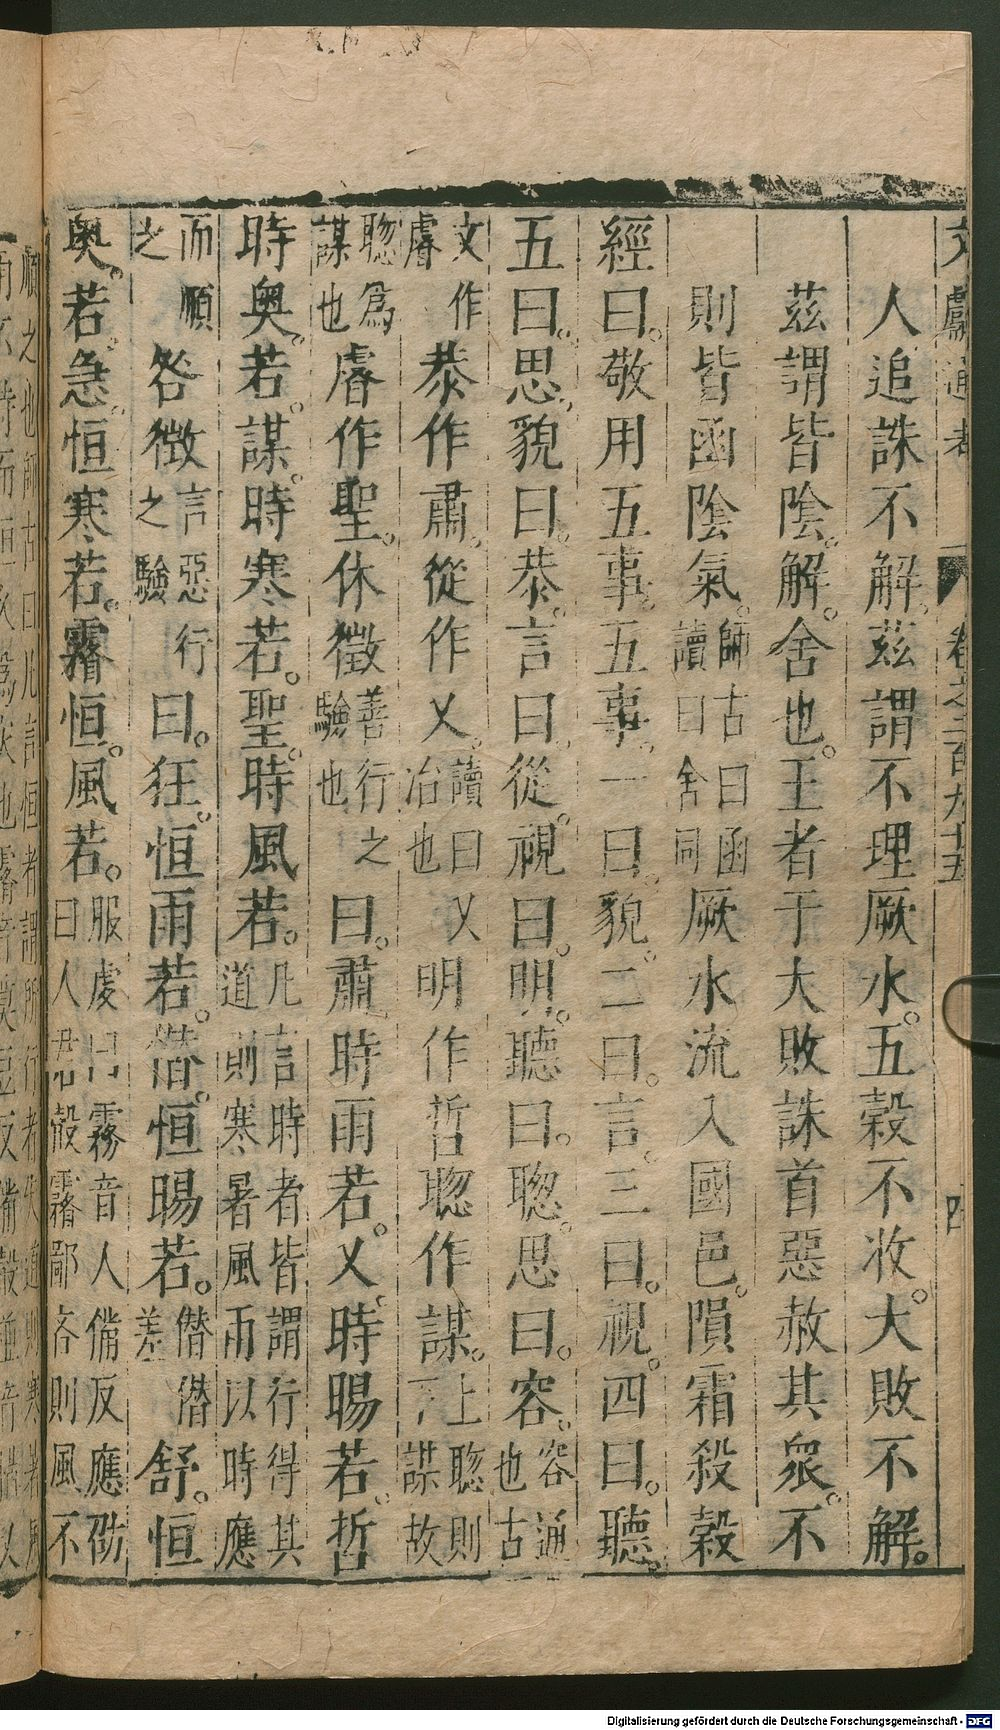 文獻通考 卷之二百九十五 四
人追誅不解。茲謂不理厥水。五穀不收。大敗不解。
茲謂皆陰。解。舍也。王者于大敗誅首惡赦其衆。不
則皆函陰氣。師古曰函讀曰含舍同厥水流入國邑。隕霜殺穀
經曰。敬用五事。五事。一曰。貌。二曰。言。三曰。視。四曰。聽。
五曰。思。貌曰。恭。言曰。從。視曰。明。聽曰。聰。思曰。容。容通也古
文作睿恭作肅。從作乂。讀曰乂治也明作哲聰作謀。上聰則下謀故
聰爲謀也睿作聖。休徵善行之驗也曰。肅時雨若。乂。時暘若。哲
時奧。若。謀。時寒若。聖。時風若。凡言時者皆謂行得其道則寒暑風雨以時應
而順之咎徵言惡行之驗曰。狂。恒雨若。僭。恒暘若。僭僭差舒。恒
奧。若。急。恒寒若。霿恒。風若。服虔曰霧音人備反應劭曰人君瞉霿鄙吝則風不
順之也師古曰凡言恒者謂所行者失道則寒暑風
Digitalisierung gefördert durch die Deutsche Forschungsgemeinschaft - DFG